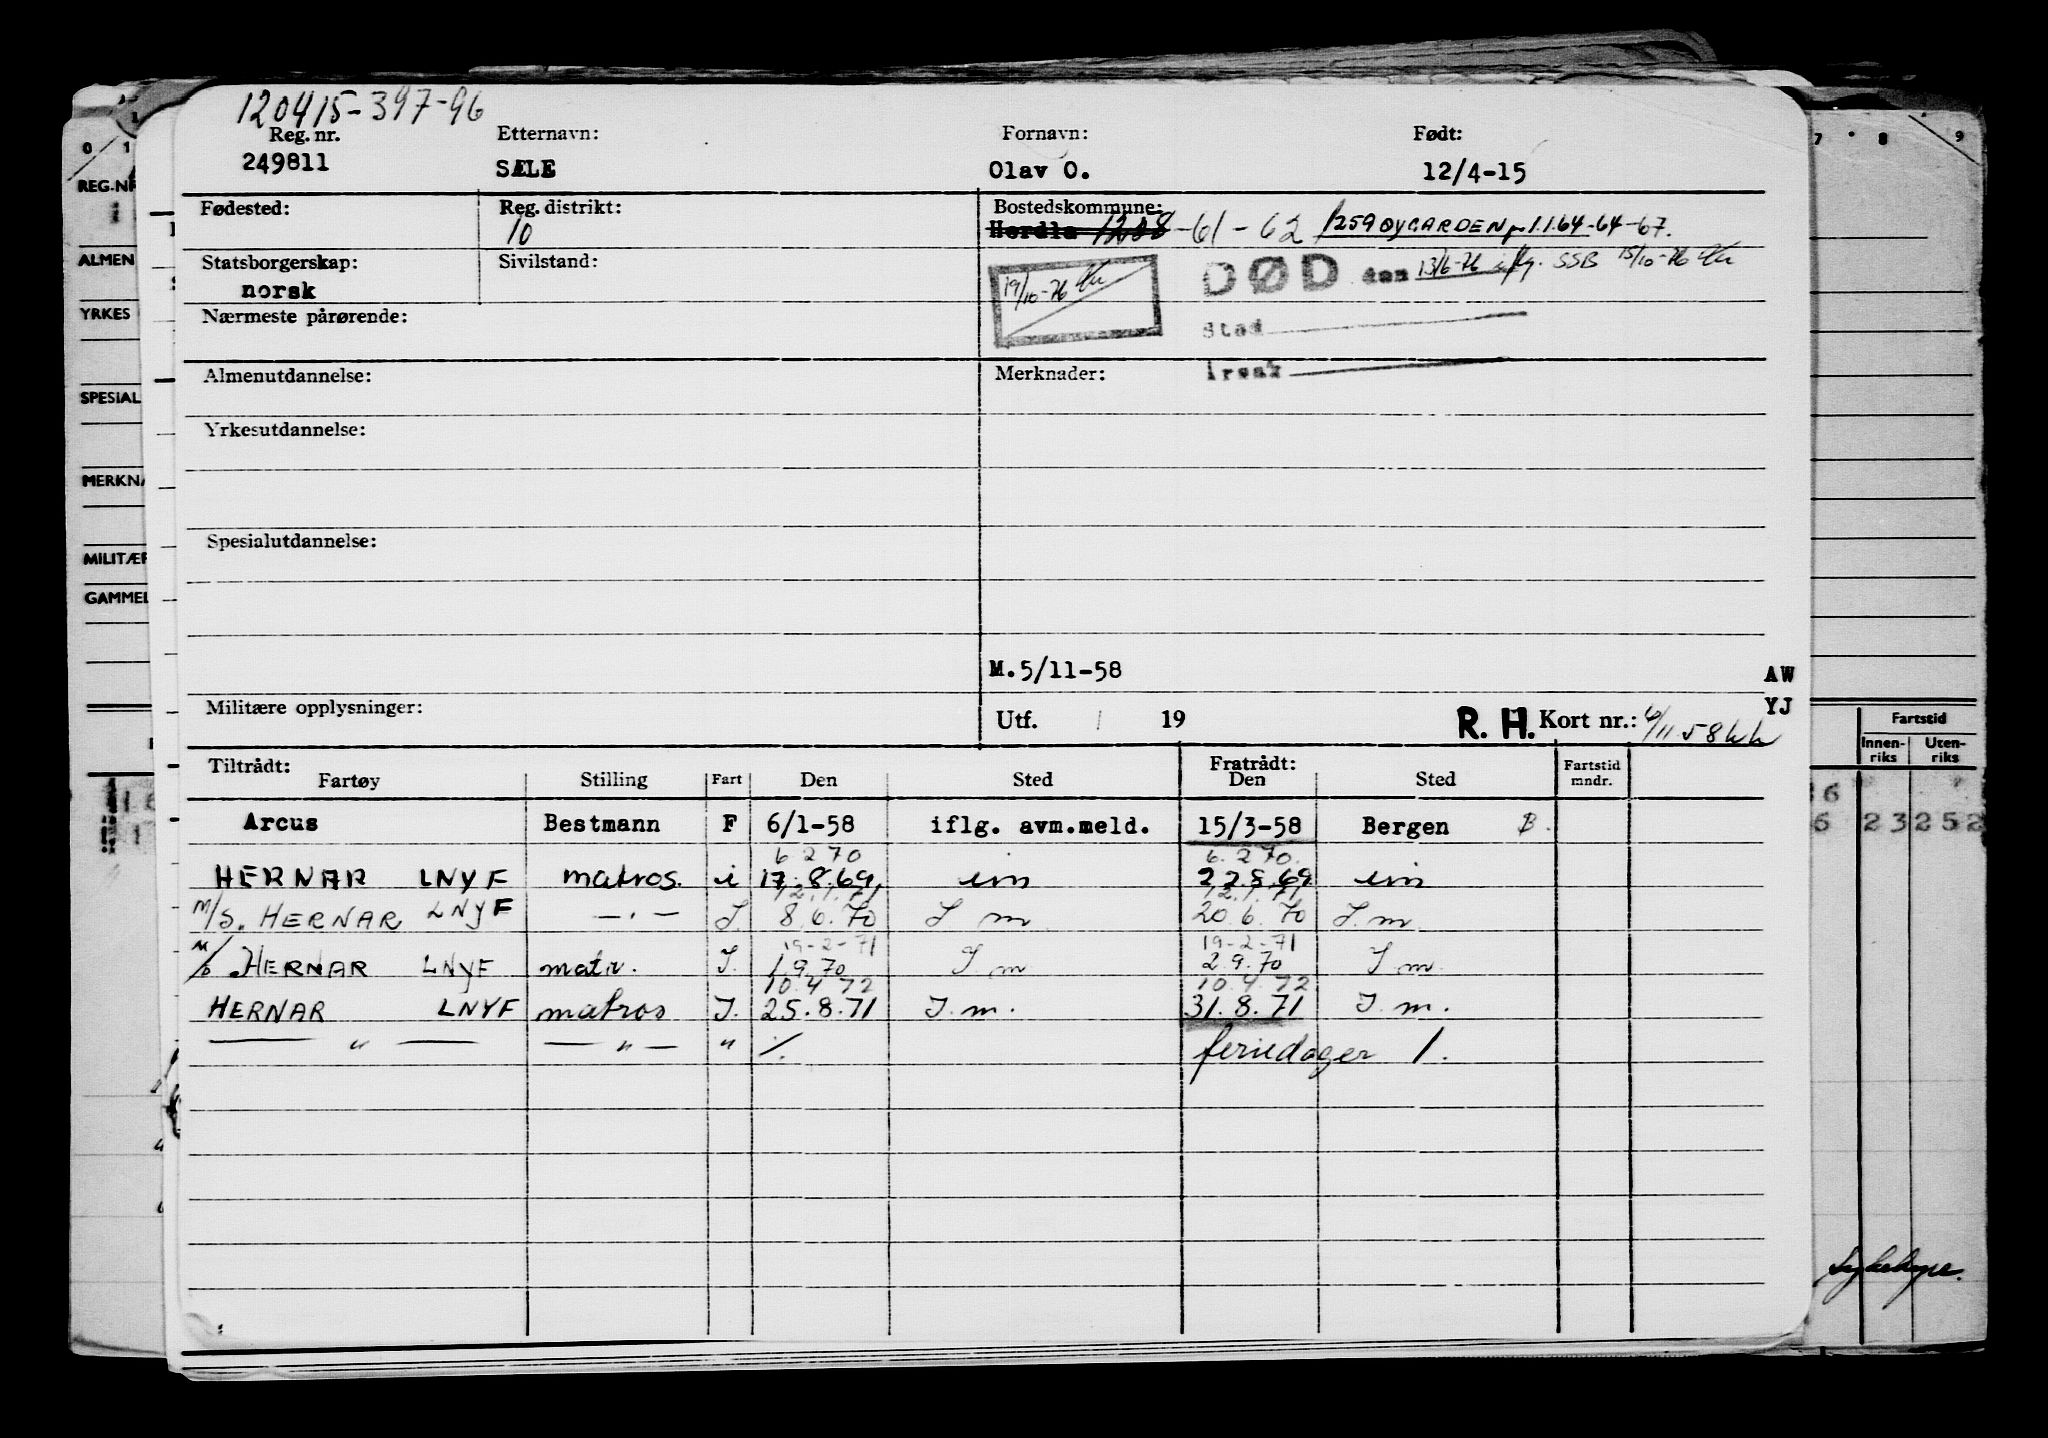 120415-397-96
Reg. nr. Etternavn: Fornavn: Født:
249811 SÆLE Olav O. 12/4-15
Fødested: Reg. distrikt: Bostedskommune:
10 Herdla 1208 -61-62 1259 ØYGARDEN pr 1.1.64-64-67.
Statsborgerskap: Sivilstand:
norsk
19/10-76
DØD den 13/6-76 iflg. SSB 15/10-76
Nærmeste pårørende:
Sted
Almenutdannelse: Merknader: Årsak
Yrkesutdannelse:
Spesialutdannelse:
M.5/11-58 AW
Militære opplysninger: Utf. 19 R. H. Kort nr.: 6/11 58 YJ
Tiltrådt: Fratrådt:
Fartøy Stilling Fart Den Sted Den Sted Fartstid mndr.
Arcus Bestmann F 6/1-58 iflg. avm.meld. 15/3-58 Bergen B.
6 2 70 6. 2 70.
HERNAR LNYF matros. i 17.8.69 im 22.8.69 im
12.1.71 12.1.71
M/S. HERNAR LNYF —"— I. 8.6.70 I m 20.6.70 I.m
19-2-71 19-2-71
M/S HERNAR LNYF matr. I. 1.9.70 I m 2.9.70 I m.
10.4.72 10.4.72
HERNAR LNYF matros I. 25.8.71 I.m. 31.8.71 I.m.
—"— —"— " %. feriedager 1.
0 1 7 8 9
REG.NR
ALMEN
YRKES
SPESIAL
MERKNA
MILITÆR
GAMMEL
Fartstid
Innen-riks Uten-riks
6
6 23 252